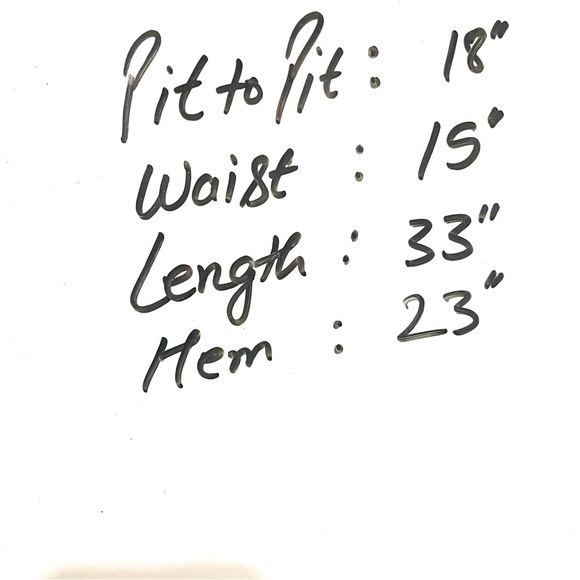 Pit to Pit : 18"
Waist : 15"
Length : 33"
Hem : 23"